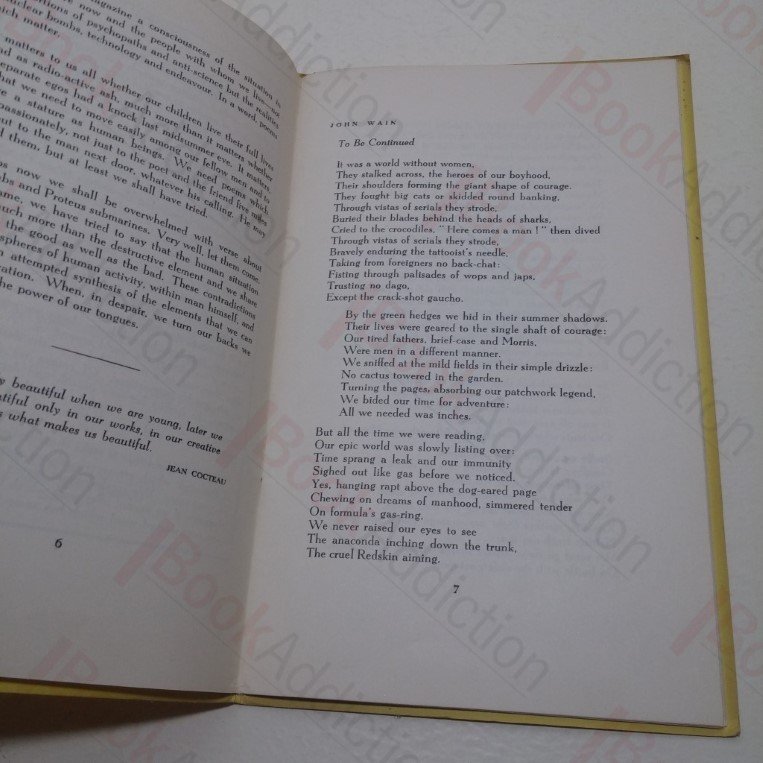 magazine a consciousness of the situation in
now and the people with whom we live; not
of psychopaths and anti-science but the realities
nuclear bombs, technology and endeavour. In a word, poems
which matter.
matters to us all whether our children live their full lives
as radio-active ash, much more than it matters whether
separate egos had a knock last midsummer eve. It matters
that we need to move easily among our fellow men and to
a stature as human beings. We need poems which
passionately, not just to the poet and the friend he writes
out to the man next door, whatever his calling. He may
them, but at least we shall have tried.
now we shall be overwhelmed with verse about
and Proteus submarines. Very well, let them come.
we have tried to say that the human situation
much more than the destructive element and we share
the good as well as the bad. These contradictions
spheres of human activity, within man himself, and
attempted synthesis of the elements that we can
When, in despair, we turn our backs we
the power of our tongues.
beautiful when we are young, later we
only in our works, in our creative
what makes us beautiful.
JEAN COCTEAU
6
JOHN WAIN
To Be Continued
It was a world without women,
They stalked across, the heroes of our boyhood,
Their shoulders forming the giant shape of courage.
They fought big cats or skidded round banking,
Through vistas of serials they strode,
Buried their blades behind the heads of sharks,
Cried to the crocodiles, "Here comes a man!" then dived
Through vistas of serials they strode,
Bravely enduring the tattooist's needle,
Taking from foreigners no back-chat:
Fisting through palisades of wops and japs,
Trusting no dago,
Except the crack-shot gaucho.
By the green hedges we hid in their summer shadows.
Their lives were geared to the single shaft of courage:
Our tired fathers, brief-case and Morris,
Were men in a different manner.
We sniffed at the mild fields in their simple drizzle:
No cactus towered in the garden.
Turning the pages, absorbing our patchwork legend,
We bided our time for adventure:
All we needed was inches.
But all the time we were reading,
Our epic world was slowly listing over:
Time sprang a leak and our immunity
Sighed out like gas before we noticed.
Yes, hanging rapt above the dog-eared page
Chewing on dreams of manhood, simmered tender
On formula's gas-ring,
We never raised our eyes to see
The anaconda inching down the trunk,
The cruel Redskin aiming.
7
BookAddiction